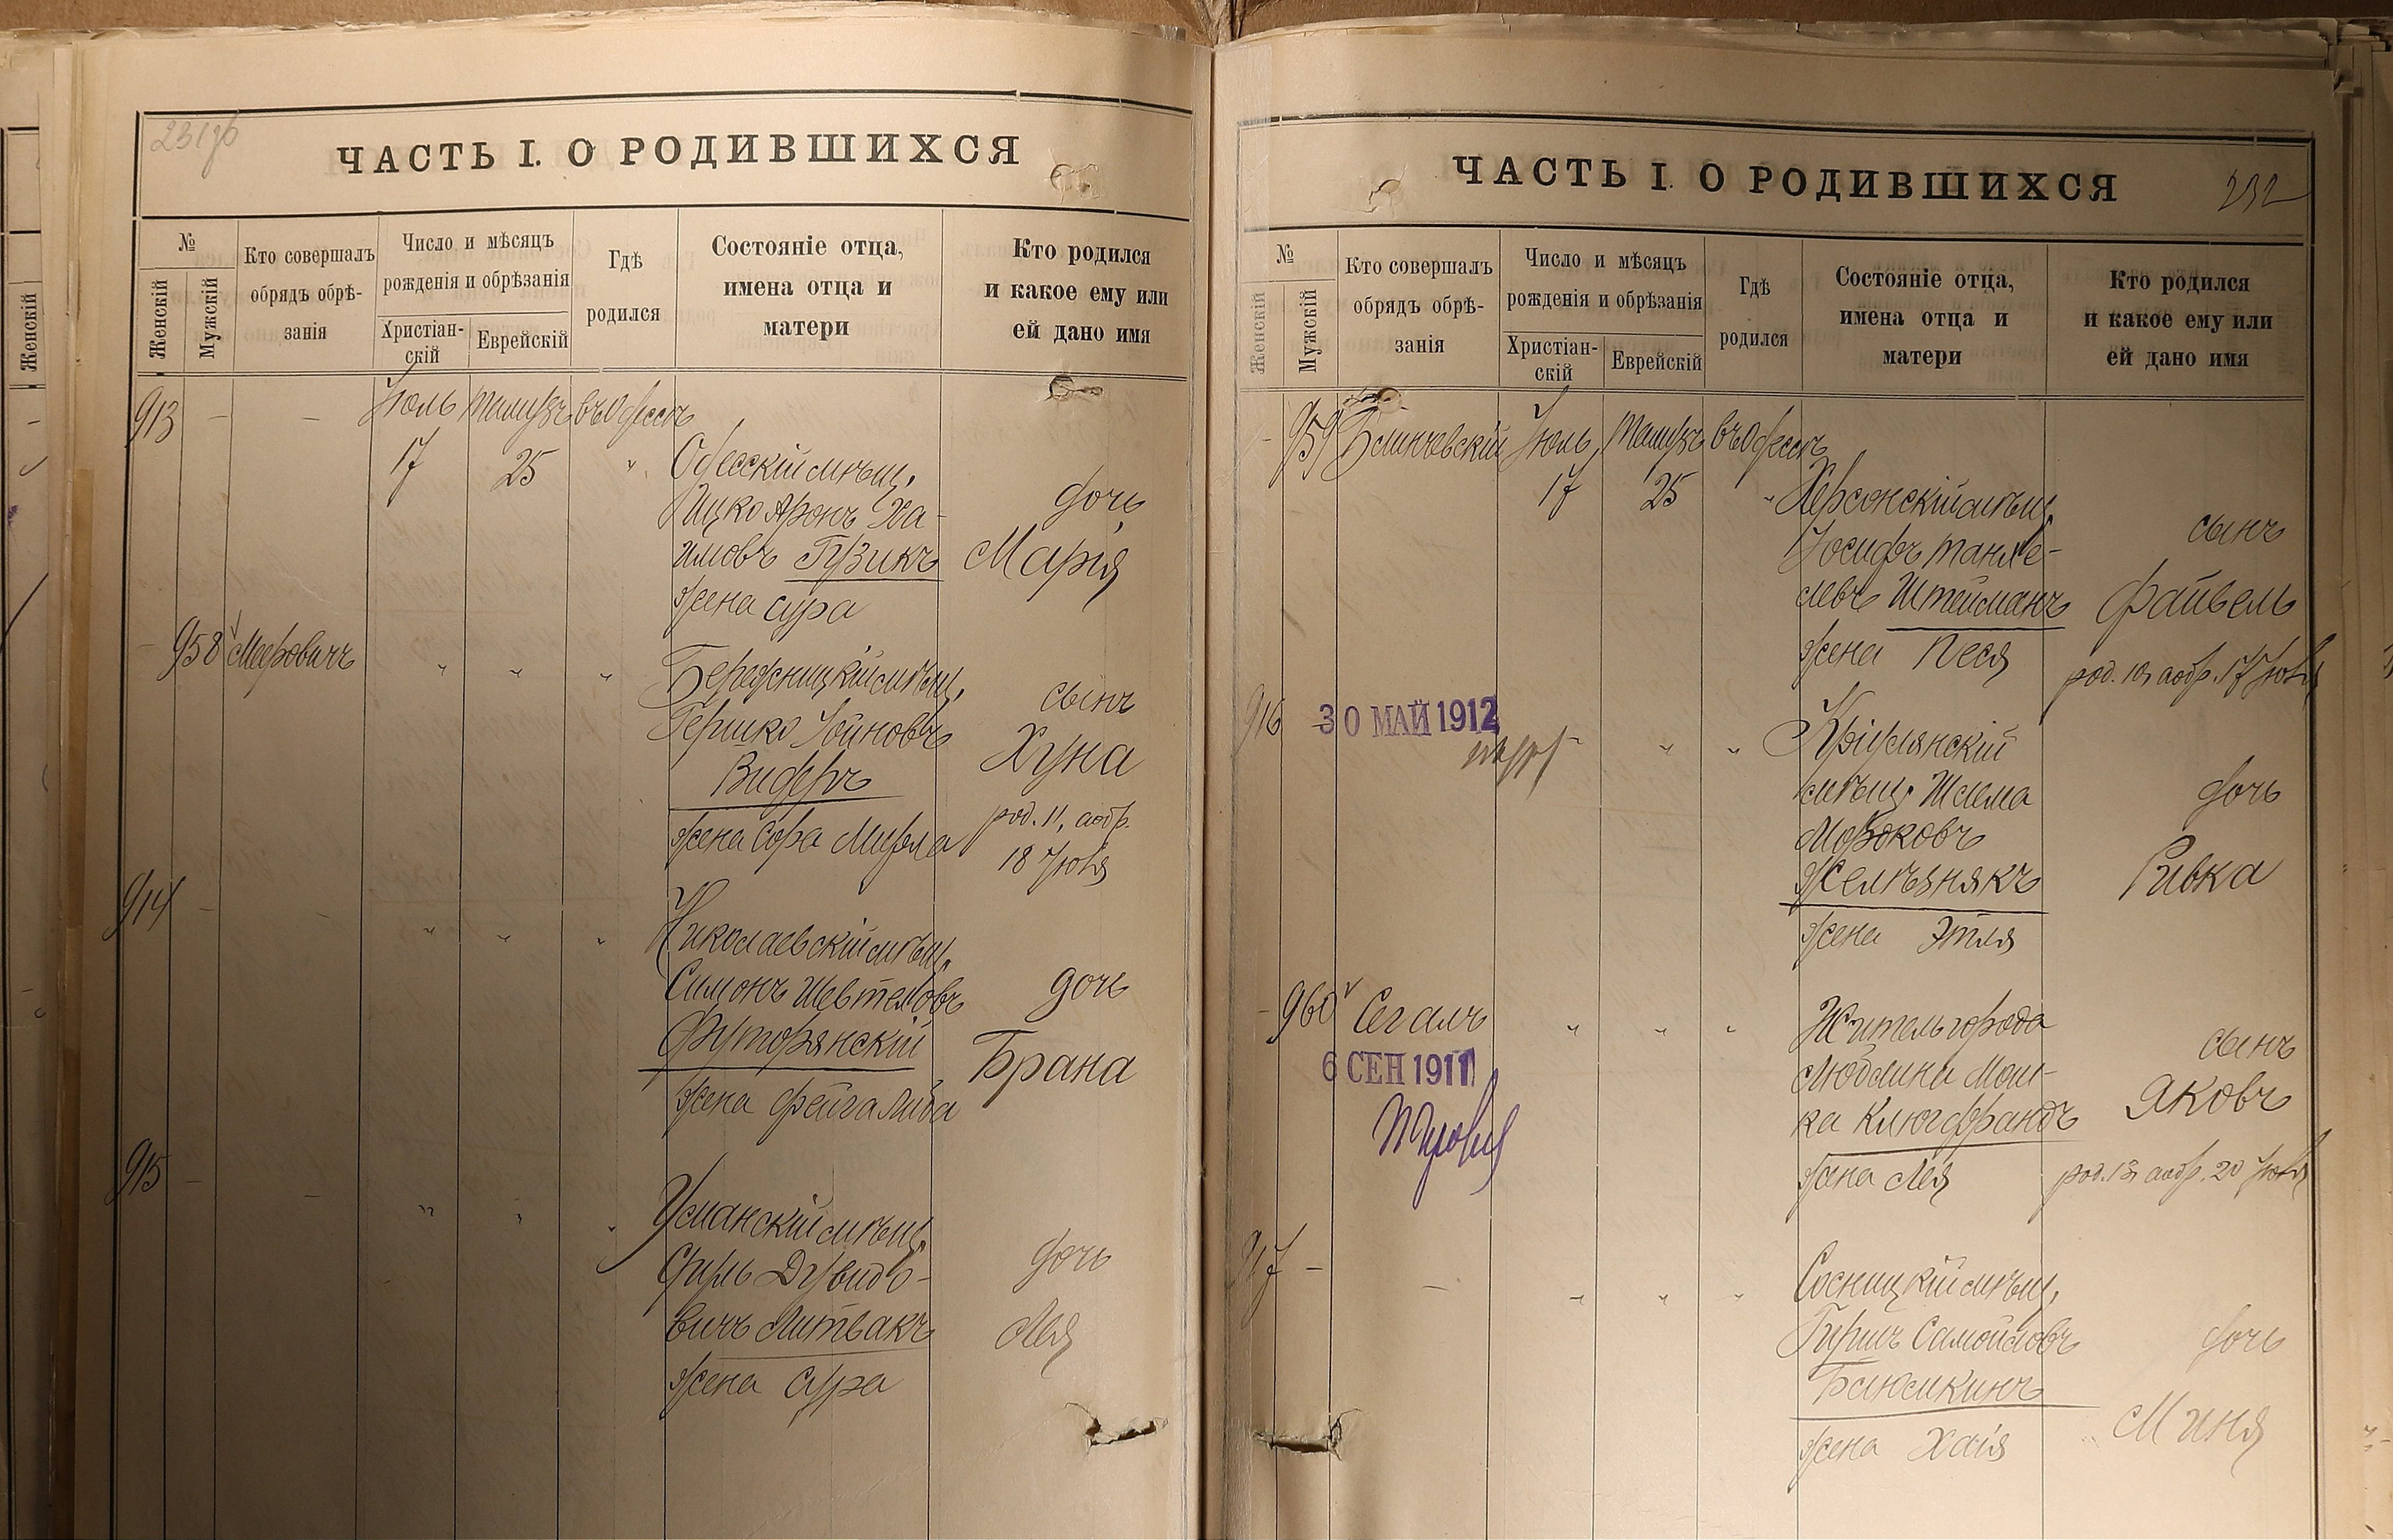 231об
ЧАСТЬ I. О РОДИВШИХСЯ
№
Женскій
Мужскій
Кто совершалъ
обрядъ обрѣ-
занія
Число и мѣсяцъ
рожденія и обрѣзанія
Христіан-
скій
Еврейскій
Гдѣ
родился
Состояніе отца,
имена отца и
матери
Кто родился
и какое ему или
ей дано имя
913 - - Іюль Тамузъ въ Одессѣ
17 25 " Одесскій мѣщ.
Ицко Аронъ Ха-
имовъ Гузикъ
жена Сура
дочь
Марія
958 Мееровичъ " " "
мѣщ.
Гершко Іойновъ
жена Сора
сынъ
Хуна
род. 11, а обр.
18 Іюня
914 - - " " "
Николаевскій мѣщ.
Симонъ
Футорянскій
жена Фейга Либа
дочь
Брана
915 - - " " "
Уманскій мѣщ.
Сруль Дувидо-
вичъ Литвакъ
жена Сура
дочь
Лея
ЧАСТЬ I. О РОДИВШИХСЯ
232
№
Женскій
Мужскій
Кто совершалъ
обрядъ обрѣ-
занія
Число и мѣсяцъ
рожденія и обрѣзанія
Христіан-
скій
Еврейскій
Гдѣ
родился
Состояніе отца,
имена отца и
матери
Кто родился
и какое ему или
ей дано имя
- 959 Іюль Тамузъ въ Одессѣ
17 25 " Херсонскій мѣщ.
Іосифъ Танхе-
левъ Штейманъ
жена Песя
сынъ
Файвель
род. 10, а обр. 17 Іюня
916 30 МАЙ 1912 " "
мѣщ. Шлема
Желѣзнякъ
жена Этля
дочь
Ривка
- 960 Сегалъ " " "
6 СЕН 1911
Житель города
Люблина Мош-
ка Клюгфрандъ
жена Лея
сынъ
Яковъ
род. 13, а обр. 20 Іюня
917 - - " " "
Сосницкій мѣщ.
Гершъ Самойловъ
Блюмкинъ
жена Хаія
дочь
Миня
Женскій